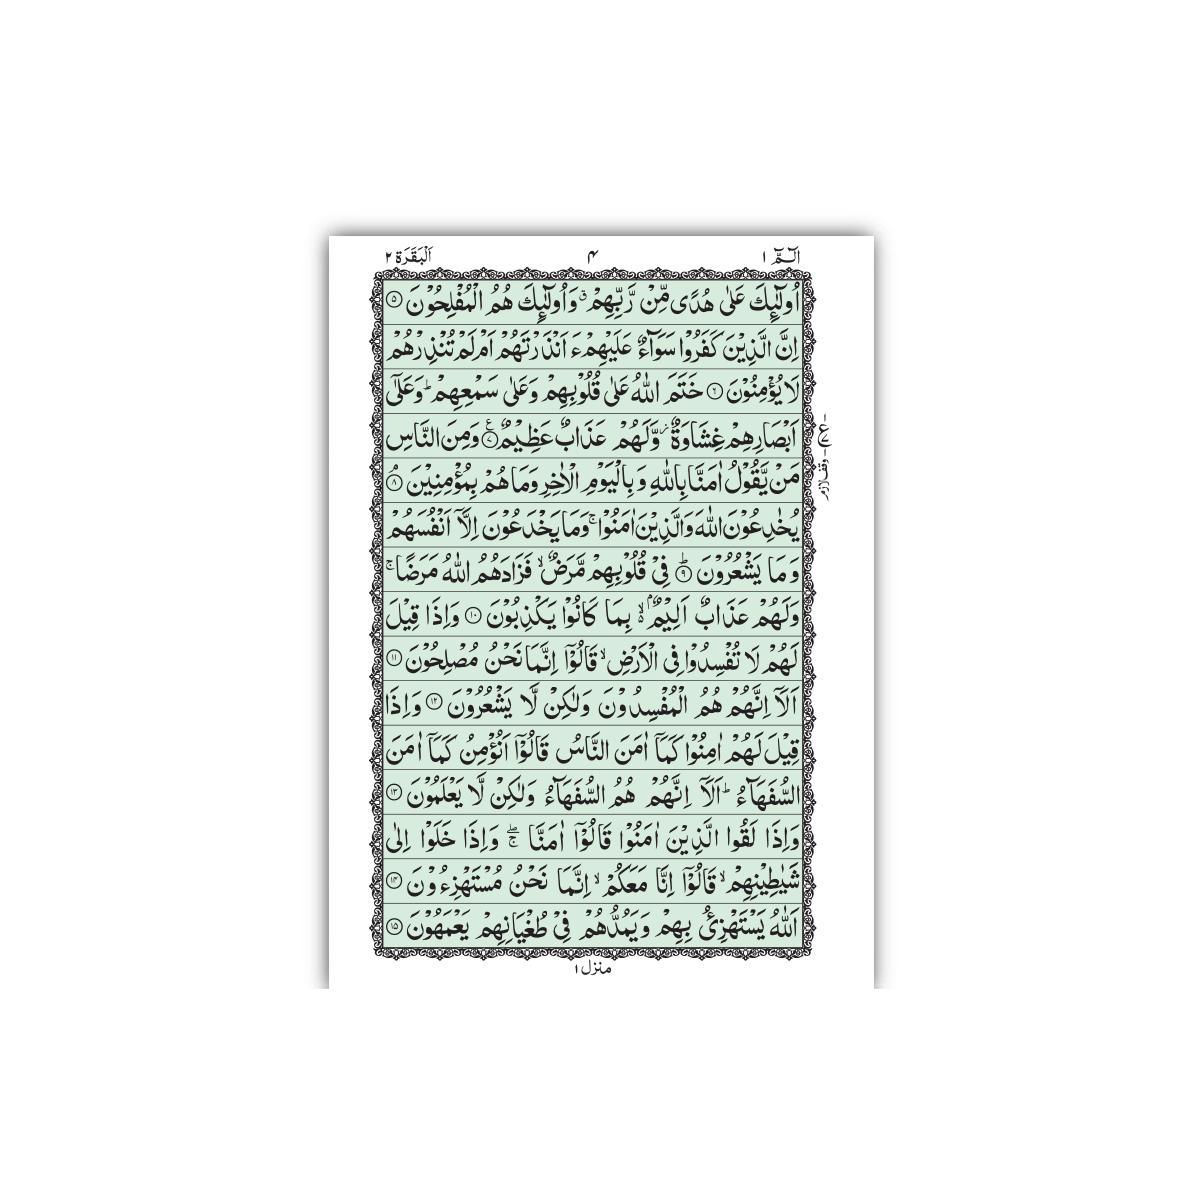 الٓـمّٓ ١ ۴ اَلْبَقَرَة ٢
اُولٰٓئِكَ عَلٰى هُدًى مِّنْ رَّبِّهِمْ ۗ وَاُولٰٓئِكَ هُمُ الْمُفْلِحُوْنَ ۝۵
اِنَّ الَّذِيْنَ كَفَرُوْا سَوَآءٌ عَلَيْهِمْ ءَاَنْذَرْتَهُمْ اَمْ لَمْ تُنْذِرْهُمْ
لَا يُؤْمِنُوْنَ ۝۶ خَتَمَ اللّٰهُ عَلٰى قُلُوْبِهِمْ وَعَلٰى سَمْعِهِمْ ؕ وَعَلٰٓى
اَبْصَارِهِمْ غِشَاوَةٌ ؗ وَّلَهُمْ عَذَابٌ عَظِيْمٌ ۝۷ وَمِنَ النَّاسِ
مَنْ يَّقُوْلُ اٰمَنَّا بِاللّٰهِ وَبِالْيَوْمِ الْاٰخِرِ وَمَا هُمْ بِمُؤْمِنِيْنَ ۝۸
يُخٰدِعُوْنَ اللّٰهَ وَالَّذِيْنَ اٰمَنُوْا ۚ وَمَا يَخْدَعُوْنَ اِلَّآ اَنْفُسَهُمْ
وَمَا يَشْعُرُوْنَ ۝۹ؕ فِيْ قُلُوْبِهِمْ مَّرَضٌ ۙ فَزَادَهُمُ اللّٰهُ مَرَضًا ۚ
وَلَهُمْ عَذَابٌ اَلِيْمٌۢ ۙ۬ بِمَا كَانُوْا يَكْذِبُوْنَ ۝۱۰ وَاِذَا قِيْلَ
لَهُمْ لَا تُفْسِدُوْا فِى الْاَرْضِ ۙ قَالُوْٓا اِنَّمَا نَحْنُ مُصْلِحُوْنَ ۝۱۱
اَلَآ اِنَّهُمْ هُمُ الْمُفْسِدُوْنَ وَلٰكِنْ لَّا يَشْعُرُوْنَ ۝۱۲ وَاِذَا
قِيْلَ لَهُمْ اٰمِنُوْا كَمَآ اٰمَنَ النَّاسُ قَالُوْٓا اَنُؤْمِنُ كَمَآ اٰمَنَ
السُّفَهَآءُ ؕ اَلَآ اِنَّهُمْ هُمُ السُّفَهَآءُ وَلٰكِنْ لَّا يَعْلَمُوْنَ ۝۱۳
وَاِذَا لَقُوا الَّذِيْنَ اٰمَنُوْا قَالُوْٓا اٰمَنَّا ۖۚ وَاِذَا خَلَوْا اِلٰى
شَيٰطِيْنِهِمْ ۙ قَالُوْٓا اِنَّا مَعَكُمْ ۙ اِنَّمَا نَحْنُ مُسْتَهْزِءُوْنَ ۝۱۴
اَللّٰهُ يَسْتَهْزِئُ بِهِمْ وَيَمُدُّهُمْ فِيْ طُغْيَانِهِمْ يَعْمَهُوْنَ ۝۱۵
وقف لازم
منزل ١